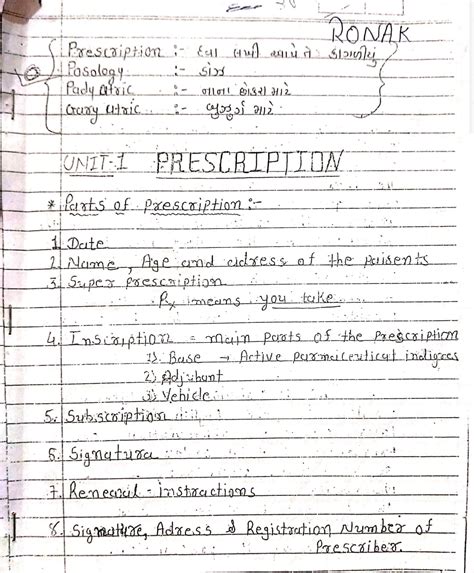 RONAK
Prescription :- દવા લખી આપે તે કાગળીયું
Posology :- ડોઝ
Pady atric :- નાના છોકરા માટે
Gary atric :- બુઝુર્ગ માટે
UNIT-1 PRESCRIPTION
* Parts of prescription :-
1. Date
2. Name, Age and adress of the paisents
3. Super prescription
Rx means you take
4. Inscription = main parts of the prescription
1). Base → Active parmaiceutical indigres
2) Adjubant
3) Vehicle
5. Subscription
6. Signatura
7. Renewal - instractions
8. Signature, Adress & Registration Number of
Prescriber.